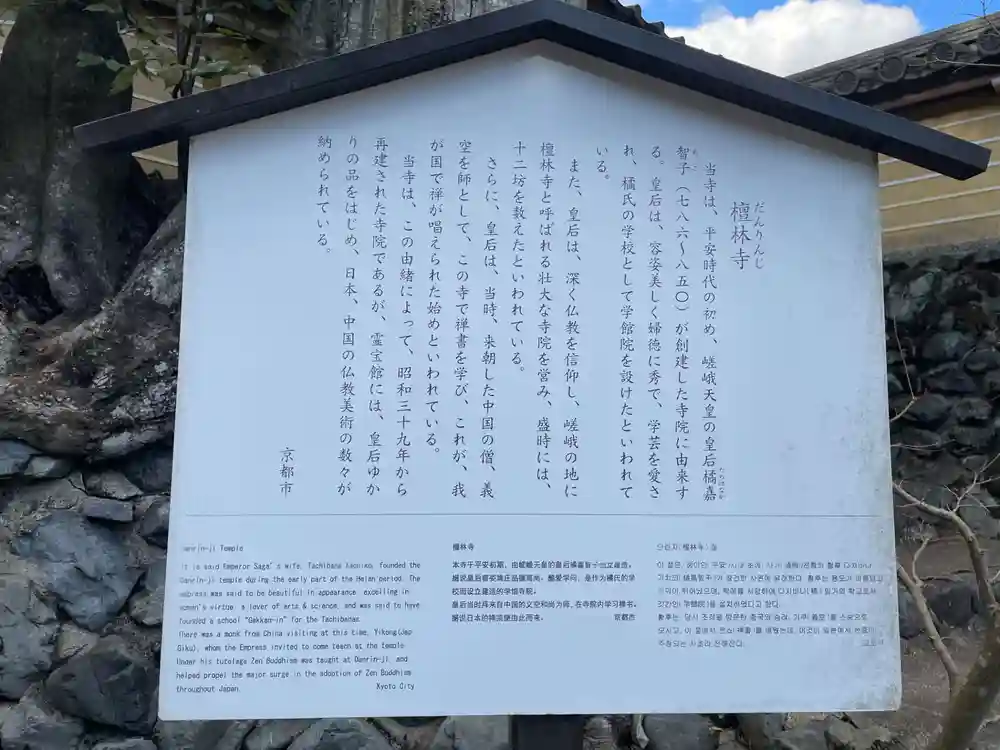 だんりんじ
檀林寺
当寺は、平安時代の初め、嵯峨天皇の皇后橘嘉
智子(七八六〜八五〇)が創建した寺院に由来す
る。皇后は、容姿美しく婦徳に秀で、学芸を愛さ
れ、橘氏の学校として学館院を設けたといわれて
いる。
また、皇后は、深く仏教を信仰し、嵯峨の地に
檀林寺と呼ばれる壮大な寺院を営み、盛時には、
十二坊を数えたといわれている。
さらに、皇后は、当時、来朝した中国の僧、義
空を師として、この寺で禅書を学び、これが、我
が国で禅が唱えられた始めといわれている。
当寺は、この由緒によって、昭和三十九年から
再建された寺院であるが、霊宝館には、皇后ゆか
りの品をはじめ、日本、中国の仏教美術の数々が
納められている。
京都市
Danrin-ji Temple
It is said Emperor Saga's wife, Tachibana Kachiko, founded the
Danrin-ji temple during the early part of the Heian period. The
empress was said to be beautiful in appearance, excelling in
women's virtue, a lover of arts & science, and was said to have
founded a school "Gakkan-in" for the Tachibanas.
There was a monk from China visiting at this time, Yikong(Jap
Giku), whom the Empress invited to come teach at the temple
Under his tutelage Zen Buddhism was taught at Danrin-ji, and
helped propel the major surge in the adoption of Zen Buddhism
throughout Japan.
Kyoto City
檀林寺
本寺于平安初期、由嵯峨天皇的皇后橘嘉智子创立建造。
据说皇后容姿端庄品德高尚、酷爱学问、是作为橘氏的学
校而设立建造的学馆寺院。
皇后当时拜来自中国的义空和尚为师、在寺院内学习禅书。
据说日本的禅院便由此而来。
京都市